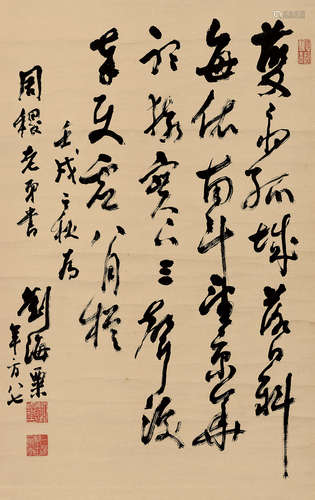 夔府孤城落日斜
每依南斗望京華
聽猿實下三聲淚
奉使虛八月槎
壬戌之秋為
周稷老弟書
劉海粟
年方八七